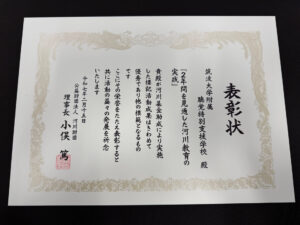 表彰状
筑波大学附属
聴覚特別支援学校 殿
『2年間を見通した河川教育の
実践』
貴殿が河川基金助成により実施
した標記活動成果はきわめて
優秀であり他の模範となるもの
です
ここにその栄誉をたたえ表彰すると
共に活動の益々の発展を祈念
いたします
令和七年一月十五日
公益財団法人 河川財団
理事長 小俣 篤